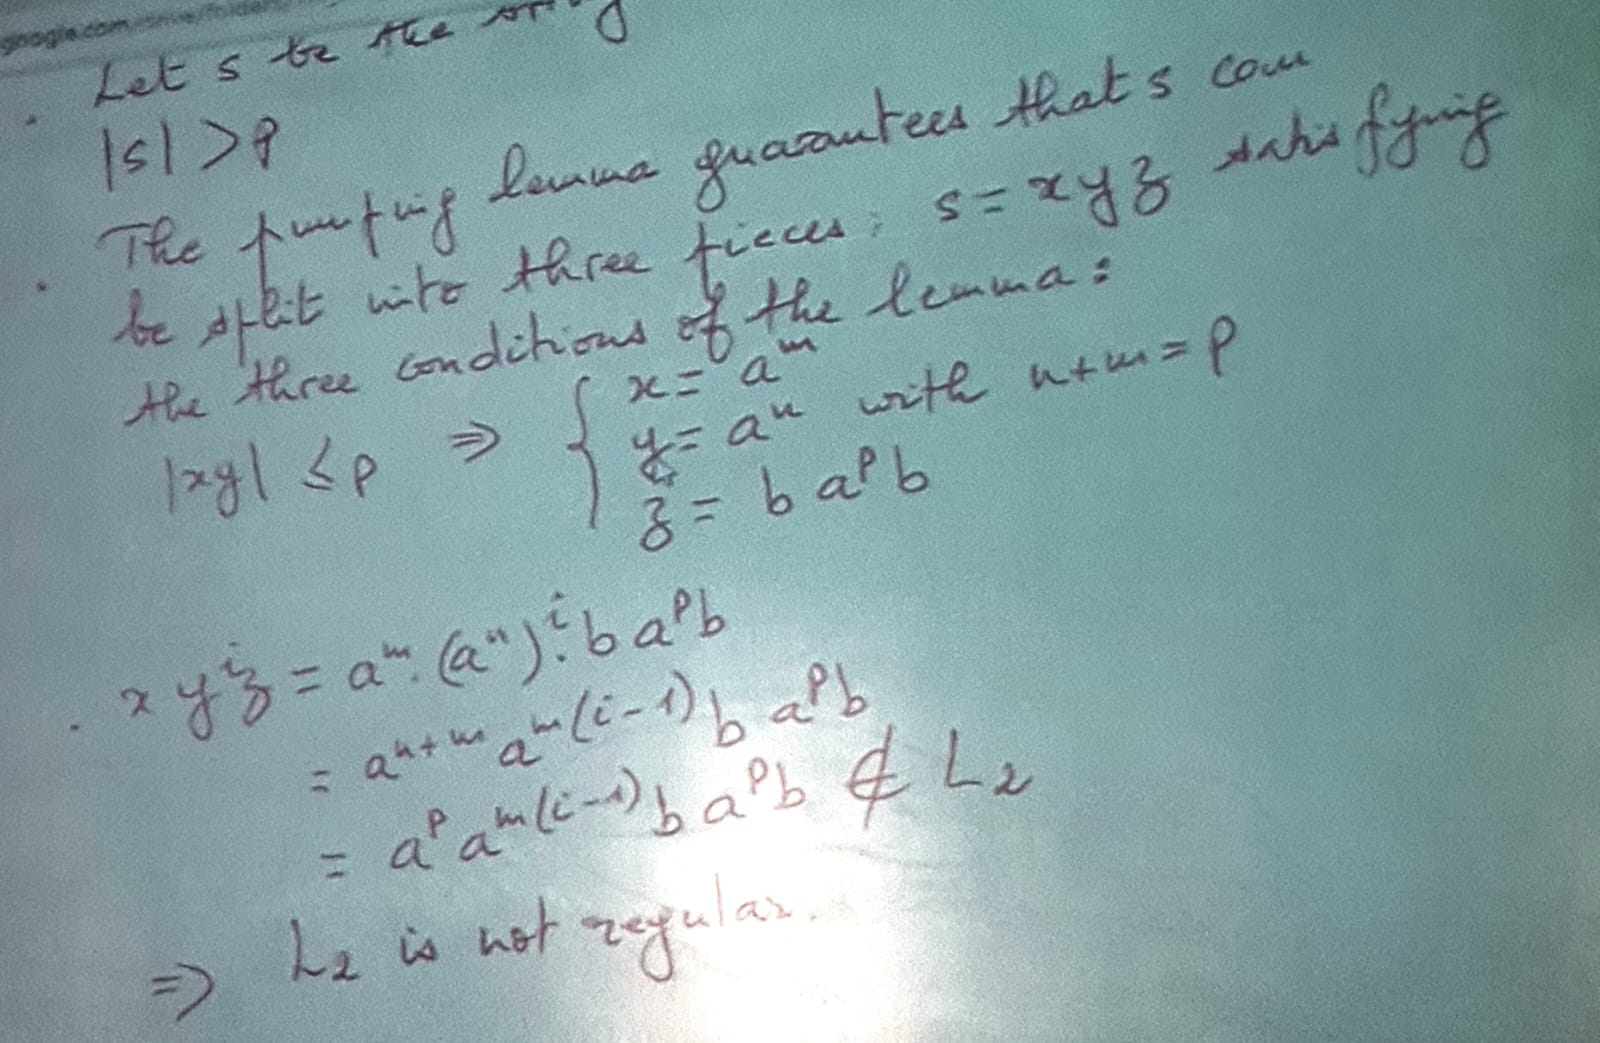 google.com/drive/folders
. Let s be the
|s| > p
. The pumping lemma guarantees that s can
be split into three pieces : s = x y z satisfying
the three conditions of the lemma :
|xy| ≤ p ⇒ { x = a^m
y = a^n with n+m = p
z = b a^p b
. x y^i z = a^m . (a^n)^i . b a^p b
= a^{n+m} a^{m(i-1)} b a^p b
= a^p a^{m(i-1)} b a^p b ∉ L_2
⇒ L_2 is not regular.